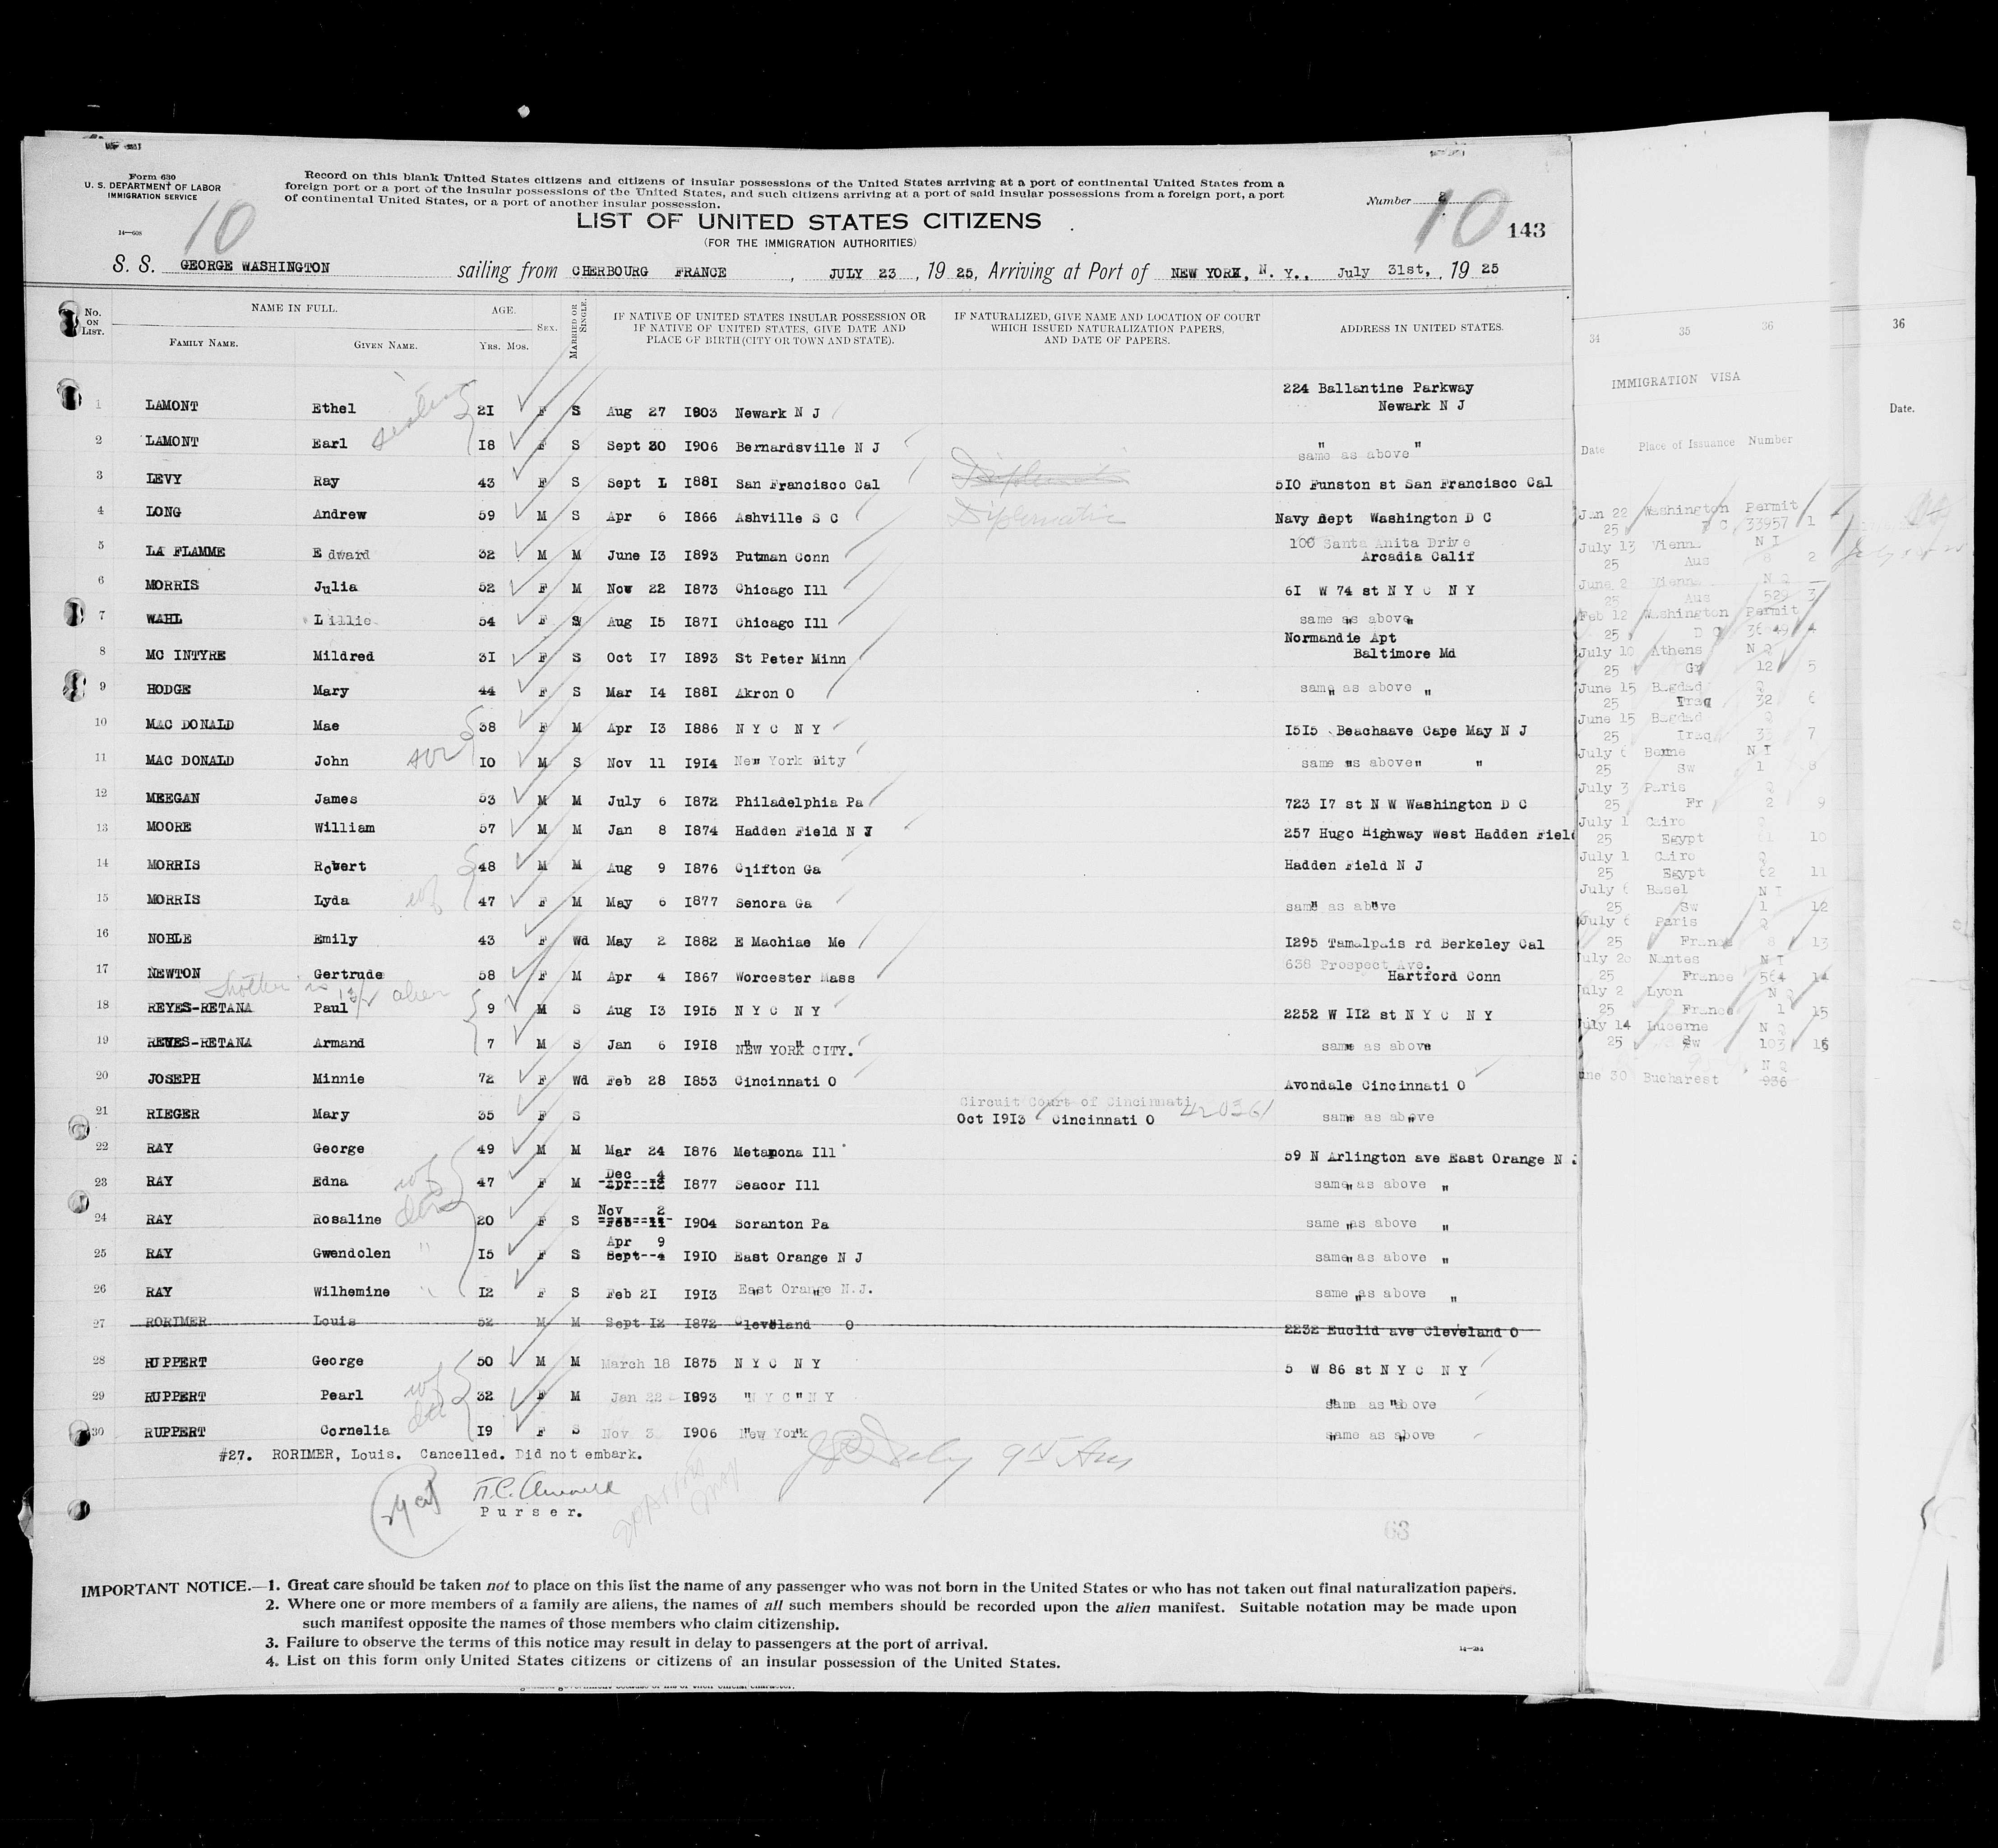 Form 630
U. S. DEPARTMENT OF LABOR
IMMIGRATION SERVICE
14—608
Record on this blank United States citizens and citizens of insular possessions of the United States arriving at a port of continental United States from a
foreign port or a port of the insular possessions of the United States, and such citizens arriving at a port of said insular possessions from a foreign port, a port
of continental United States, or a port of another insular possession.
10
Number 8
10 143
LIST OF UNITED STATES CITIZENS
(FOR THE IMMIGRATION AUTHORITIES)
S. S. GEORGE WASHINGTON sailing from CHERBOURG FRANCE, JULY 23, 1925, Arriving at Port of NEW YORK, N. Y., July 31st, 1925
No. ON LIST. NAME IN FULL. FAMILY NAME. GIVEN NAME. AGE. YRS. MOS. SEX. MARRIED OR SINGLE. IF NATIVE OF UNITED STATES INSULAR POSSESSION OR
IF NATIVE OF UNITED STATES, GIVE DATE AND
PLACE OF BIRTH (CITY OR TOWN AND STATE).
IF NATURALIZED, GIVE NAME AND LOCATION OF COURT
WHICH ISSUED NATURALIZATION PAPERS,
AND DATE OF PAPERS.
ADDRESS IN UNITED STATES.
224 Ballantine Parkway
1 LAMONT Ethel 21 F S Aug 27 1903 Newark N J Newark N J
2 LAMONT Earl 18 F S Sept 30 1906 Bernardsville N J same as above
3 LEVY Ray 43 F S Sept 1 1881 San Francisco Cal Diplomatic 510 Funston st San Francisco Cal
4 LONG Andrew 59 M S Apr 6 1866 Ashville S C Diplomatic Navy Dept Washington D C
100 Santa Anita Drive
5 LA FLAMME Edward 32 M M June 13 1893 Putman Conn Arcadia Calif
6 MORRIS Julia 52 F M Nov 22 1873 Chicago Ill 61 W 74 st N Y C N Y
7 WAHL Lillie 54 F S Aug 15 1871 Chicago Ill same as above
Normandie Apt
8 MC INTYRE Mildred 31 F S Oct 17 1893 St Peter Minn Baltimore Md
9 HODGE Mary 44 F S Mar 14 1881 Akron O same as above "
10 MAC DONALD Mae 38 F M Apr 13 1886 N Y C N Y 1515 Beachaave Cape May N J
11 MAC DONALD John son 10 M S Nov 11 1914 New York City same as above " "
12 MEEGAN James 53 M M July 6 1872 Philadelphia Pa 723 17 st N W Washington D C
13 MOORE William 57 M M Jan 8 1874 Hadden Field N J 257 Hugo Highway West Hadden Fiel
14 MORRIS Robert 48 M M Aug 9 1876 Clifton Ga Hadden Field N J
15 MORRIS Lyda wf 47 F M May 6 1877 Senora Ga same as above
16 NOBLE Emily 43 F Wd May 2 1882 E Machiae Me 1295 Tamalpais rd Berkeley Cal
638 Prospect Ave.
17 NEWTON Gertrude 58 F M Apr 4 1867 Worcester Mass Hartford Conn
Mother is 13/1 alien
18 REYES-RETANA Paul 9 M S Aug 13 1915 N Y C N Y 2252 W 112 st N Y C N Y
19 REYES-RETANA Armand 7 M S Jan 6 1918 NEW YORK CITY. same as above
20 JOSEPH Minnie 72 F Wd Feb 28 1853 Cincinnati O Avondale Cincinnati O
Circuit Court of Cincinnati 420361
21 RIEGER Mary 35 F S Oct 1913 Cincinnati O same as above
22 RAY George 49 M M Mar 24 1876 Metamona Ill 59 N Arlington ave East Orange N J
Dec 4
23 RAY Edna wf 47 F M Apr 12 1877 Seacor Ill same as above "
Nov 2
24 RAY Rosaline 20 F S Feb 11 1904 Scranton Pa same as above "
Apr 9
25 RAY Gwendolen " 15 F S Sept 4 1910 East Orange N J same as above "
26 RAY Wilhemine " 12 F S Feb 21 1913 East Orange N.J. same as above "
27 RORIMER Louis 52 M M Sept 12 1872 Cleveland O 2232 Euclid ave Cleveland O
28 RUPPERT George 50 M M March 18 1875 N Y C N Y 5 W 86 st N Y C N Y
29 RUPPERT Pearl wf 32 F M Jan 22 1893 N Y C N Y same as above
30 RUPPERT Cornelia 19 F S Nov 3 1906 New York same as above
#27. RORIMER, Louis. Cancelled. Did not embark.
Purser.
63
IMPORTANT NOTICE.—1. Great care should be taken not to place on this list the name of any passenger who was not born in the United States or who has not taken out final naturalization papers.
2. Where one or more members of a family are aliens, the names of all such members should be recorded upon the alien manifest. Suitable notation may be made upon
such manifest opposite the names of those members who claim citizenship.
3. Failure to observe the terms of this notice may result in delay to passengers at the port of arrival.
4. List on this form only United States citizens or citizens of an insular possession of the United States.
34 35 36
IMMIGRATION VISA
Date Place of Issuance Number
Jan 22 Washington Permit
25 D C 33957 1
July 13 Vienna N I
25 Aus 8 2
June 2 Vienna N Q
25 Aus 529 3
Feb 12 Washington Permit
25 D C 4
July 10 Athens N Q
25 Gr 12 5
June 15 Bagdad Q
25 Iraq 32 6
June 15 Bagdad Q
25 Iraq 33 7
July 6 Berne N I
25 Sw 1 8
July 3 Paris Q
25 Fr 2 9
July 1 Cairo Q
25 Egypt 61 10
July 1 Cairo Q
25 Egypt 62 11
July 6 Basel N I
25 Sw 1 12
July 6 Paris Q
25 France 8 13
July 20 Nantes N I
25 France 564 14
July 2 Lyon N Q
25 France 1 15
July 14 Lucerne N Q
25 Sw 103 16
N Q
une 30 Bucharest 936
36
Date.